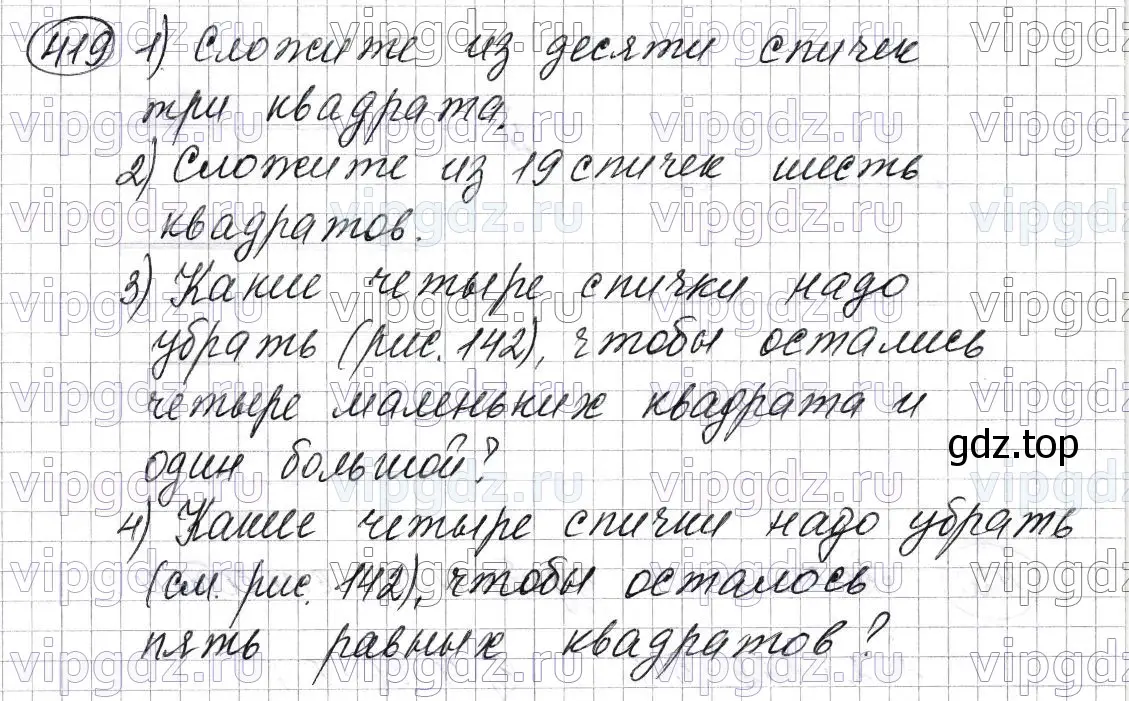 419 1) Сложите из десяти спичек
три квадрата.
2) Сложите из 19 спичек шесть
квадратов.
3) Какие четыре спички надо
убрать (рис. 142), чтобы остались
четыре маленьких квадрата и
один большой?
gdz.top
4) Какие четыре спички надо убрать
(см. рис. 142), чтобы осталось
пять равных квадратов?
vipgdz.ru